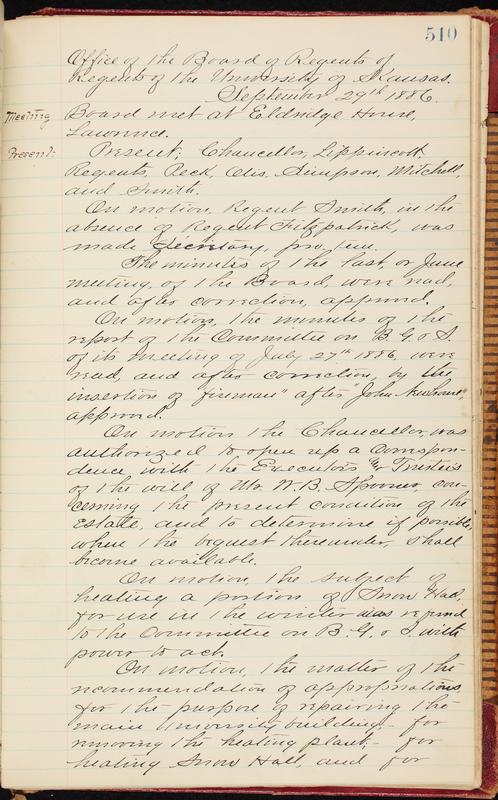 510
Office of the Board of Regents of
Regents of the University of Kansas.
September 29th 1886.
Meeting
Board met at Eldridge House,
Lawrence.
Present:
Present; Chancellor, Lippincott,
Regents, Peck, Otis, Simpson, Mitchell,
and Smith.
On motion, Regent Smith, in the
absence of Regent Fitzpatrick, was
made Secretary, pro, tem.
The minutes of the last, or June
meeting, of the Board, were read,
and after correction, approved.
On motion, the minutes of the
report of the Committee on B. G. & S.
of its meeting of July 27th 1886, were
read, and after correction, by the
insertion of "fireman" after "John
approved.
On motion the Chancellor, was
authorized to open up a correspon-
dence with the Executors or Trustees
of the will of Mr. W. B. Spooner, con-
cerning the present condition of the
estate, and to determine if possible,
when the bequest thereunder, shall
become available.
On motion, the subject of
heating a portion of Snow Hall,
for use in the winter was referred
to the Committee on B. G. & S. with
power to act.
On motion, the matter of the
recommendation of appropriations,
for the purpose of repairing the
main University building,- for
removing the heating plant,- for
heating Snow Hall, and for